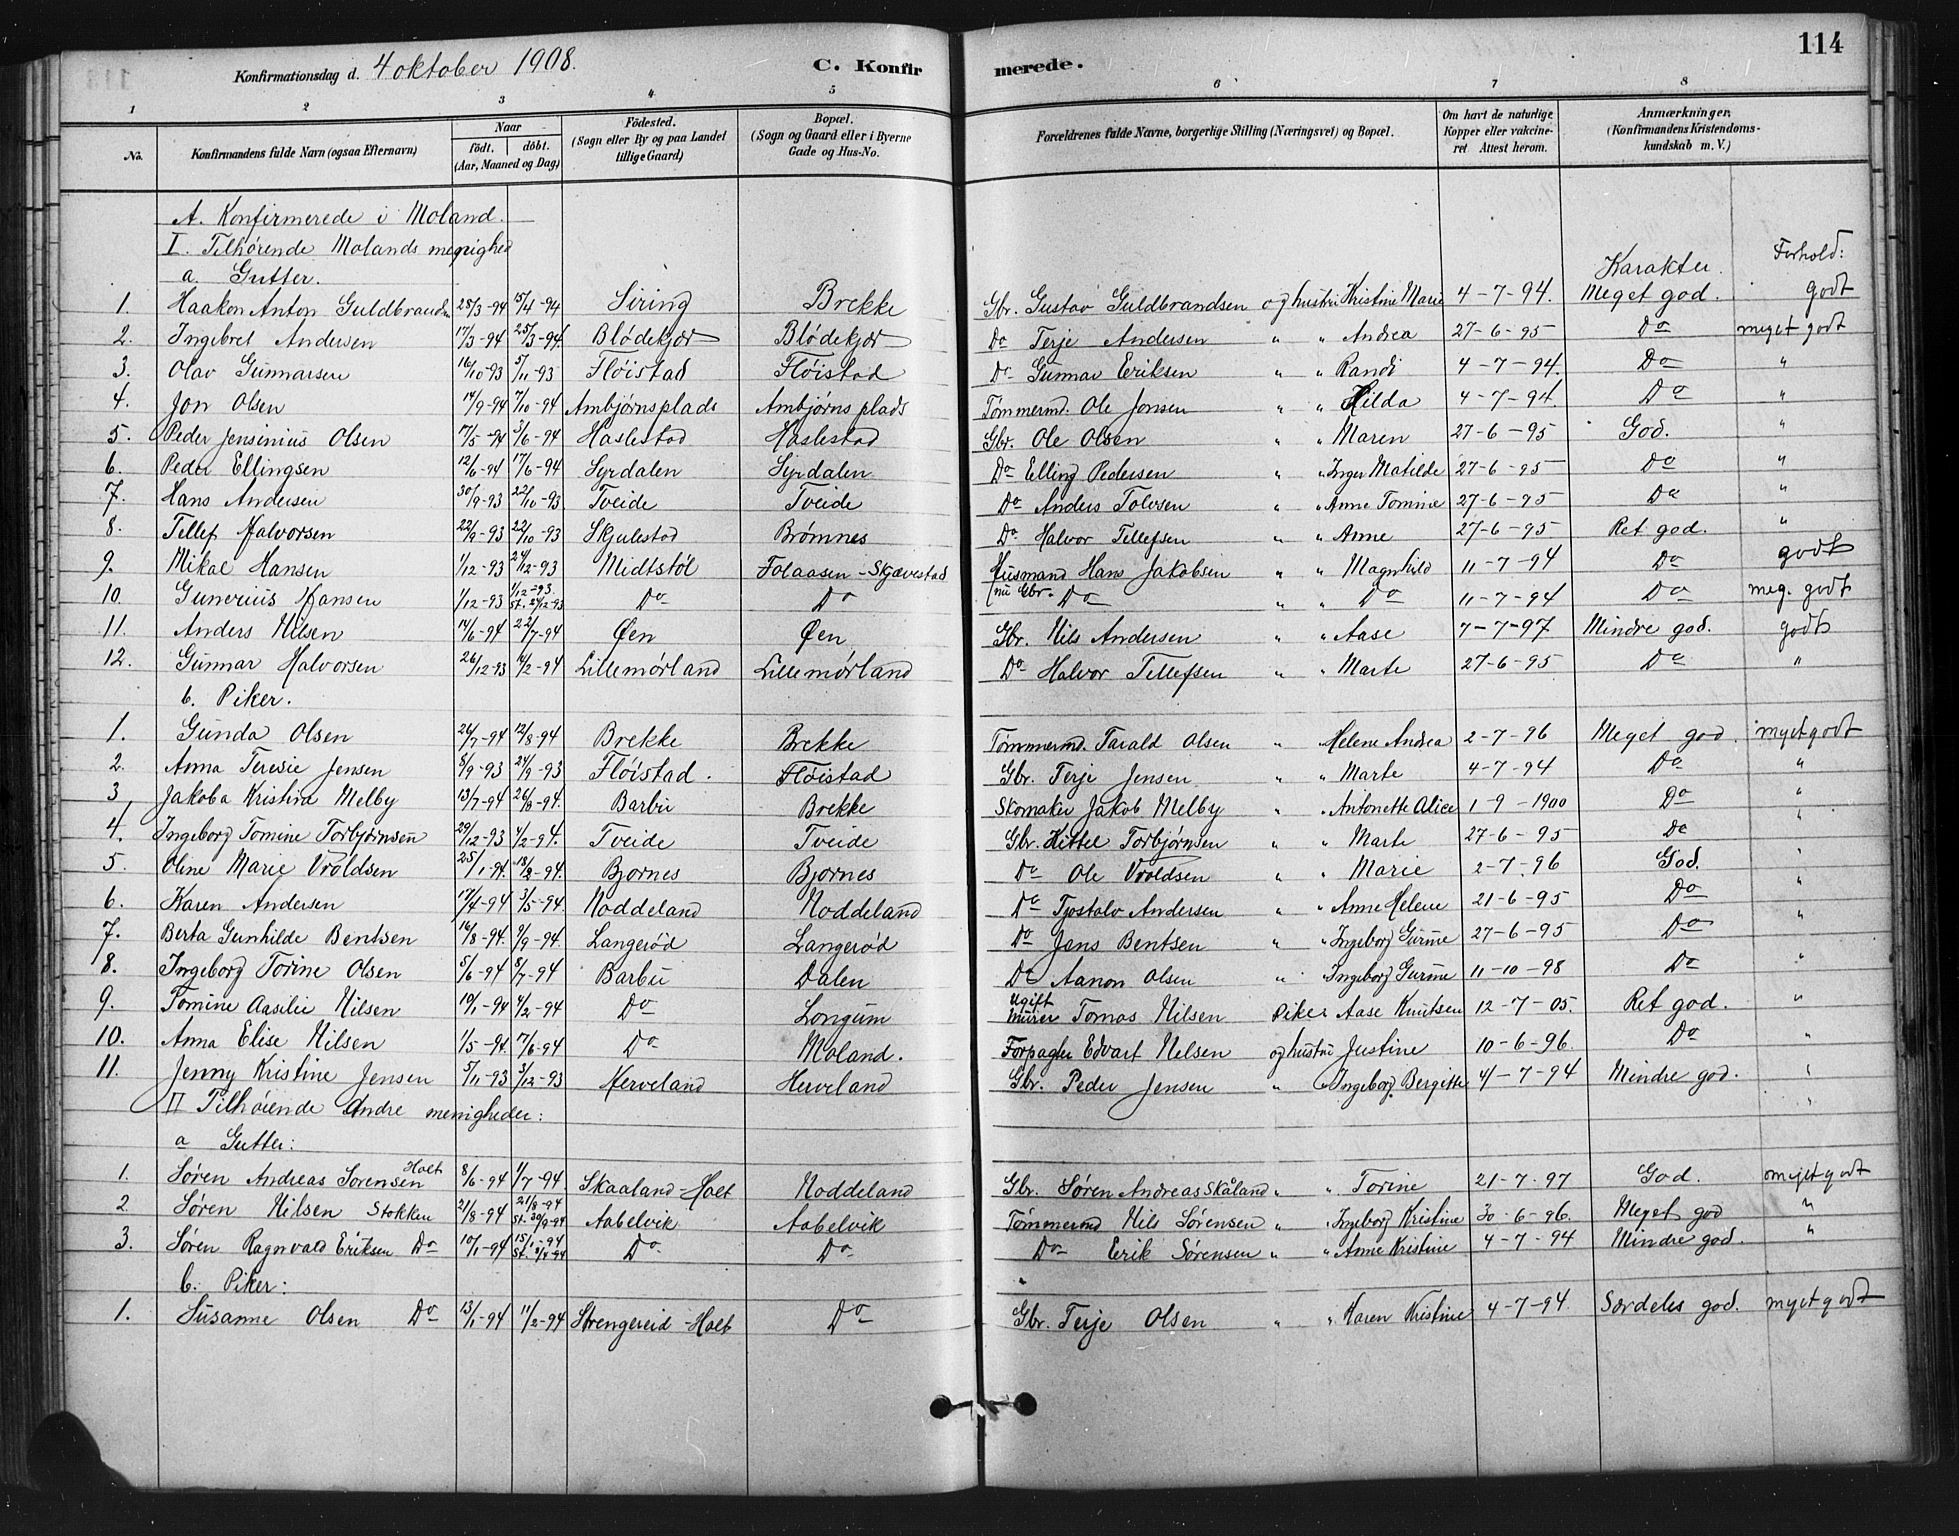 114
Konfirmationsdag d. 4 oktober 1908. C. Konfirmerede.
1 2 3 4 5 6 7 8
No. Konfirmandens fulde Navn (ogsaa Efternavn) Naar født. døbt. (Aar, Maaned og Dag) Fødested. (Sogn eller By og paa Landet tillige Gaard) Bopæl. (Sogn og Gaard eller i Byerne Gade og Hus-No. Forældrenes fulde Navne, borgerlige Stilling (Næringsvei) og Bopæl. Om havt de naturlige Kopper eller vakcineret Attest herom. Anmærkninger, (Konfirmandens Kristendomskundskab m. V.)
A. Konfirmerede i Moland.
I. Tilhørende Molands menighed
a. Gutter. Karakter. Forhold:
1. Haakon Anton Guldbrandsen 28/3-94 15/4-94 Siring Brekke Gbr. Gustav Guldbrandsen og hustru Kristine Marie 4-7-94. Meget god. godt
2. Ingebret Andersen 17/3-94 25/3-94 Blødekjær Blødekjær Do Terje Andersen " " Andrea 27-6-95 Do meget godt
3. Olav Gunnarsen 16/10-93 5/11-93 Fløistad Fløistad Do Gunnar Eriksen " " Randi 4-7-94. Do "
4. Jon Olsen 14/9-94 7/10-94 Ambjørnsplads Ambjørnsplads Tømmermd. Ole Jonsen " " Hilda 4-7-94. Do "
5. Peder Jensinius Olsen 17/5-94 3/6-94 Haslestad Haslestad Gbr. Ole Olsen " " Maren 27-6-95 God. "
6. Peder Ellingsen 12/6-94 17/6-94 Syrdalen Syrdalen Do Elling Pedersen " " Inger Matilde 27-6-95 Do "
7. Hans Andersen 30/9-93 22/10-93 Tveide Tveide Do Anders Tolvsen " " Anne Tomine 27-6-95 Do "
8. Tellef Halvorsen 22/9-93 22/10-93 Skjulestad Brømnes Do Halvor Tellefsen " " Anne 27-6-95 Ret god. "
9. Mikal Hansen 1/12-93 24/12-93 Midtstøl Folaasen-Skjævestad Husmand Hans Jakobsen " " Magnhild 11-7-94 Do godt
10. Gunerius Hansen 1/12-93 1/12-93 St. 24/12-93 Do Do (nu Gbr. Do " " Do 11-7-94 Do meg. godt
11. Anders Nilsen 14/6-94 22/7-94 Øen Øen Gbr. Nils Andersen " " Aase 7-7-97 Mindre god. godt
12. Gunnar Halvorsen 26/12-93 4/2-94 Lillemørland Lillemørland Do Halvor Tellefsen " " Marte 27-6-95 Do "
b. Piker.
1. Gunda Olsen 24/7-94 12/8-94 Brekke Brekke Tømmermd. Tarald Olsen " Helene Andrea 2-7-96 Meget god. meget godt
2. Anna Teresie Jensen 5/9-93 24/9-93 Fløistad. Fløistad Gbr. Terje Jensen " " Marte 4-7-94 Do "
3 Jakoba Kristina Melby 13/7-94 26/8-94. Barbu Brekke Skomaker Jakob Melby " " Antonette Alice 1-9-1900 Do "
4. Ingeborg Tomine Torbjørnsen 29/12-93 4/2-94. Tveide Tveide Gbr. Kittel Torbjørnsen " " Marte 27-6-95 Do "
5. Oline Marie Vroldsen 25/1-94. 18/2-94. Bjornes Bjornes Do Ole Vroldsen " " Marie 2-7.96 God. "
6. Karen Andersen 17/4-94 3/5-94. Noddeland Noddeland Do Tjøstolv Andersen " " Anne Helene 21-6-95 Do "
7. Berta Gunhilde Bentsen 16/8-94. 9/9-94. Langerød Langerød Do Jens Bentsen " " Ingeborg Gurine 27-6-95 Do "
8. Ingeborg Torine Olsen 5/6-94 8/7-94 Barbu Dalen Do Aanon Olsen " " Ingeborg Gurine 11-10-98 Do "
9. Tomine Aasilie Nilsen 10/1-94 4/2-94 Do Longum Ugift Murer Tomas Nilsen Piker Aase Knutsen 12-7-05. Ret god. "
10. Anna Elise Nilsen 1/5-94. 17/6-94 Do Moland. Forpagter Edvart Nilsen og hustru Justine 10-6-96. Do "
11. Jenny Kristine Jensen 5/11-93 3/12-93 Herveland Herveland Gbr. Peder Jensen " " Ingeborg Bergitte 4-7-94 Mindre god. "
II Tilhørende Andre menigheder: "
a Gutter:
1. Søren Andreas Sørensen Holt 8/6-94 1/7-94. Skaaland-Holt Noddeland Gbr. Søren Andreas Skåland " " Torine 21-7-97 God. meget godt
2 Søren Nilsen Stokken 21/8-94 21/8-94 St. 30/9-94 Aabelvik Aabelvik Tømmermd Nils Sørensen " " Ingeborg Kristine 30-6-96. Meget god "
3. Søren Ragnvald Eriksen Do 10/1-94 15/1-94 St. 8/4-94 Do Do Do Erik Sørensen " " Anne Kristine 4-7-94 Mindre god. "
b. Piker: "
1. Susanne Olsen Do 13/1-94 11/2-94 Strengereid-Holt Do Gbr. Terje Olsen " " Karen Kristine 4-7-94. Særdeles god. meget godt